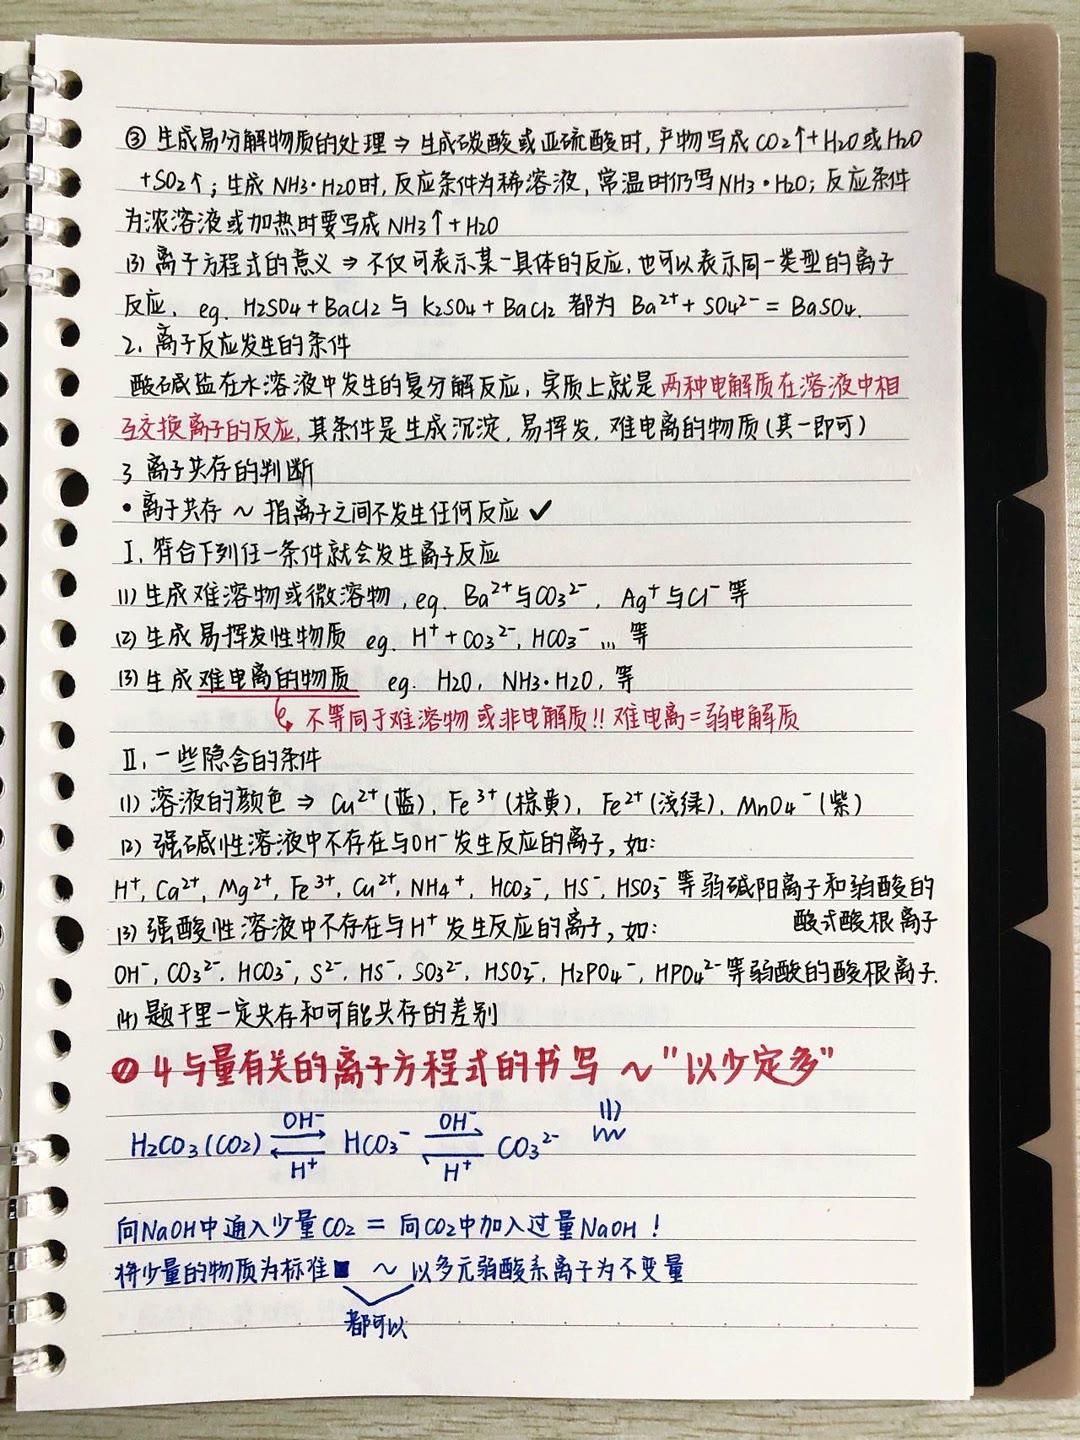 ③ 生成易分解物质的处理 ⇒ 生成碳酸或亚硫酸时, 产物写成CO2↑+H2O或H2O
+SO2↑; 生成NH3·H2O时, 反应条件为稀溶液, 常温时仍写NH3·H2O; 反应条件
为浓溶液或加热时要写成NH3↑+H2O
(3) 离子方程式的意义 ⇒ 不仅可表示某一具体的反应, 也可以表示同一类型的离子
反应. eg. H2SO4+BaCl2 与 K2SO4+BaCl2 都为 Ba²⁺+SO4²⁻=BaSO4.
2. 离子反应发生的条件
酸碱盐在水溶液中发生的复分解反应, 实质上就是两种电解质在溶液中相
互交换离子的反应, 其条件是生成沉淀, 易挥发, 难电离的物质(其一即可)
3 离子共存的判断
• 离子共存 ~ 指离子之间不发生任何反应 ✔
I. 符合下列任一条件就会发生离子反应
(1) 生成难溶物或微溶物, eg. Ba²⁺与CO3²⁻, Ag⁺与Cl⁻等
(2) 生成易挥发性物质 eg. H⁺+CO3²⁻, HCO3⁻ ... 等
(3) 生成难电离的物质 eg. H2O, NH3·H2O, 等
↳ 不等同于难溶物或非电解质!! 难电离=弱电解质
II. 一些隐含的条件
(1) 溶液的颜色 ⇒ Cu²⁺(蓝), Fe³⁺(棕黄), Fe²⁺(浅绿), MnO4⁻(紫)
(2) 强碱性溶液中不存在与OH⁻发生反应的离子, 如:
H⁺, Ca²⁺, Mg²⁺, Fe³⁺, Cu²⁺, NH4⁺, HCO3⁻, HS⁻, HSO3⁻等弱碱阳离子和弱酸的
酸式酸根离子
(3) 强酸性溶液中不存在与H⁺发生反应的离子, 如:
OH⁻, CO3²⁻, HCO3⁻, S²⁻, HS⁻, SO3²⁻, HSO3⁻, H2PO4⁻, HPO4²⁻等弱酸的酸根离子.
(4) 题干里一定共存和可能共存的差别
4 与量有关的离子方程式的书写 ~ "以少定多"
OH⁻ OH⁻ (1)
H2CO3(CO2) ⇌ HCO3⁻ ⇌ CO3²⁻
H⁺ H⁺
向NaOH中通入少量CO2 = 向CO2中加入过量NaOH !
将少量的物质为标准 ~ 以多元弱酸系离子为不变量
都可以